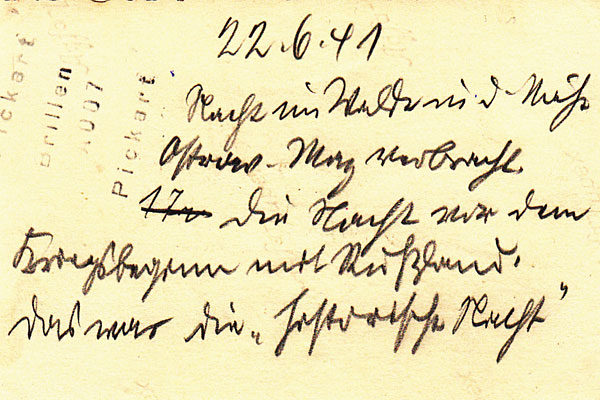 22.6.41
Nacht im Walde in d. Nähe
Ostrow-Maz verbracht.
Die Nacht vor dem
Kriegsbeginn mit Rußland.
Das war die „historische Nacht“
Pickart
Brillen
Pickart